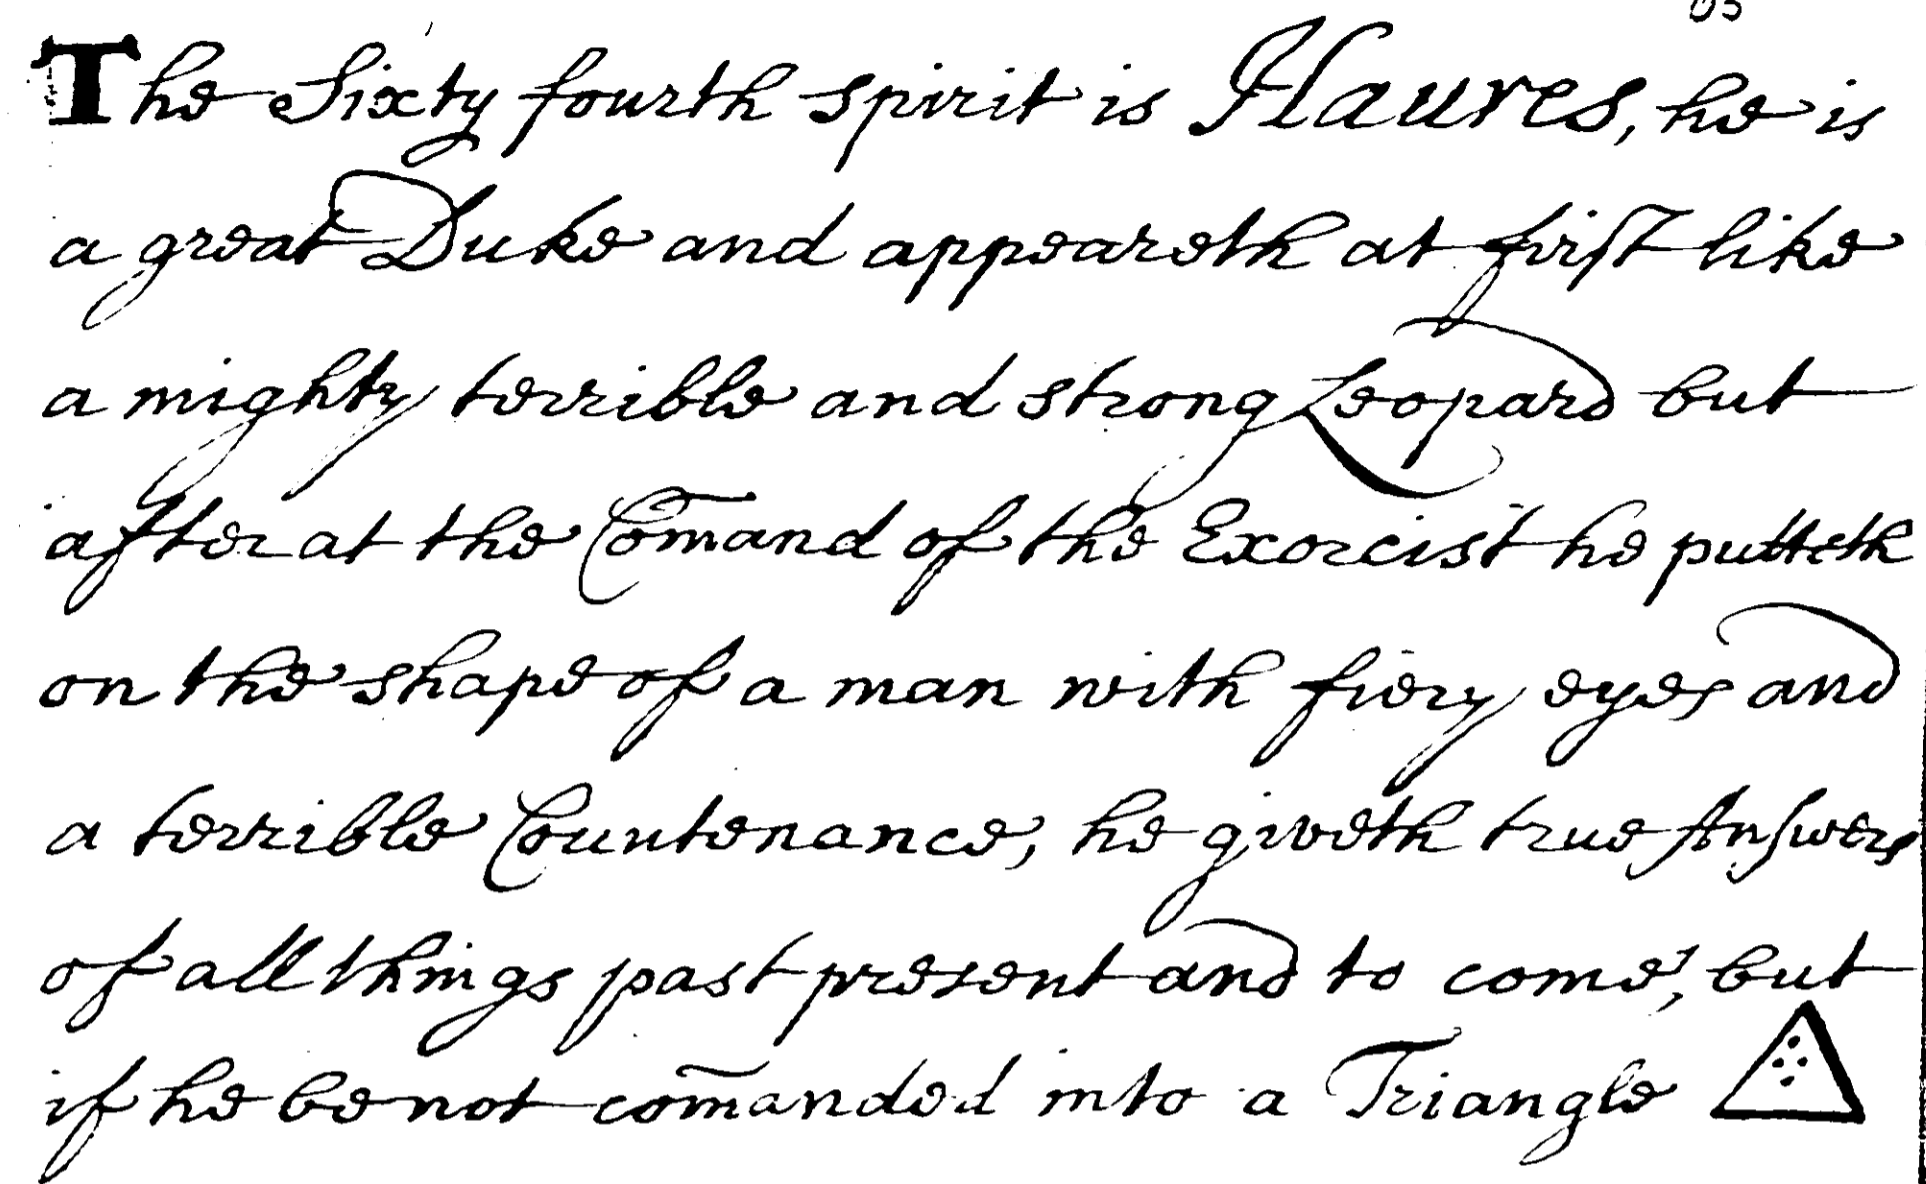 The Sixty fourth spirit is Haures, he is
a great Duke and appeareth at first like
a mighty terrible and strong Leopard but
after at the Com̄and of the Exorcist he putteth
on the shape of a man with fiery eyes and
a terrible Countenance, he giveth true Answers
of all things past present and to come, but
if he be not com̄anded into a Triangle